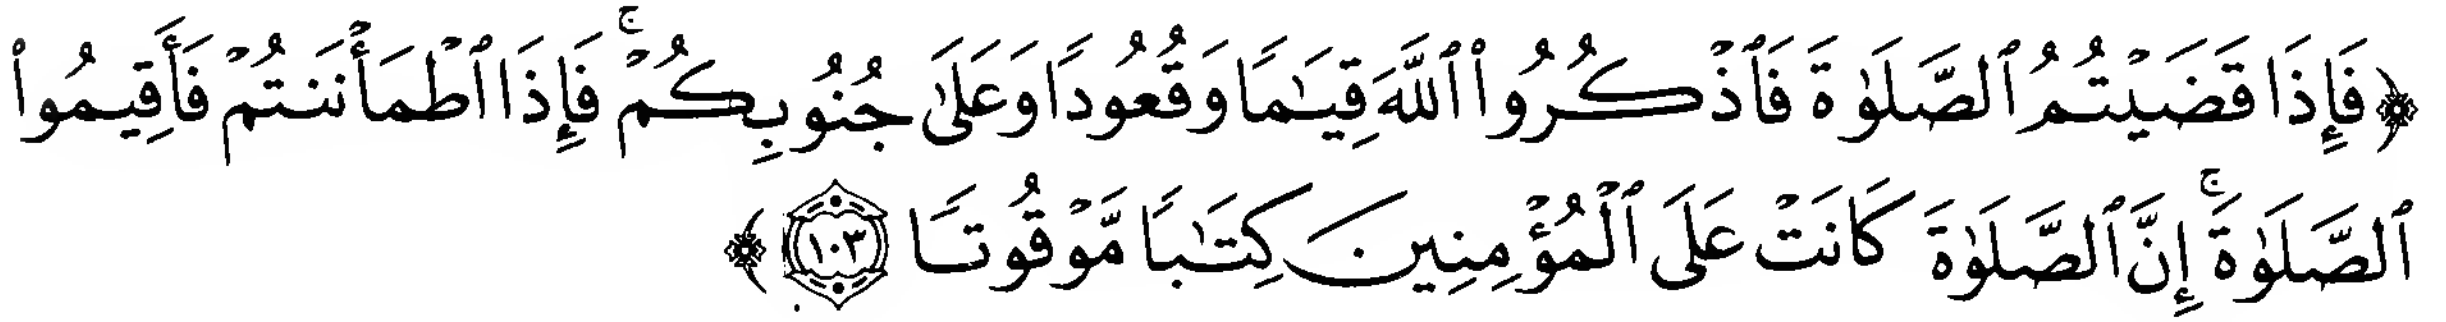 ﴿فَإِذَا قَضَيۡتُمُ ٱلصَّلَوٰةَ فَٱذۡكُرُواْ ٱللَّهَ قِيَٰمٗا وَقُعُودٗا وَعَلَىٰ جُنُوبِكُمۡۚ فَإِذَا ٱطۡمَأۡنَنتُمۡ فَأَقِيمُواْ
ٱلصَّلَوٰةَۚ إِنَّ ٱلصَّلَوٰةَ كَانَتۡ عَلَى ٱلۡمُؤۡمِنِينَ كِتَٰبٗا مَّوۡقُوتٗا ١٠٣﴾